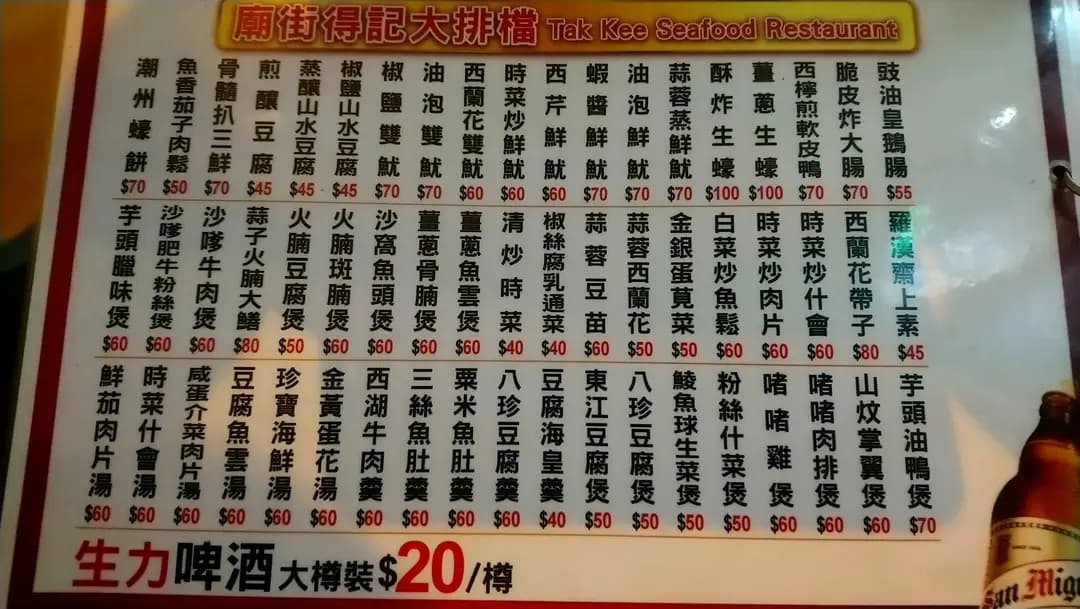 廟街得記大排檔 Tak Kee Seafood Restaurant
豉油皇鵝腸 $55
脆皮炸大腸 $70
西檸煎軟皮鴨 $70
薑蔥生蠔 $100
酥炸生蠔 $100
蒜蓉蒸鮮魷 $70
油泡鮮魷 $70
蝦醬鮮魷 $70
西芹鮮魷 $60
時菜炒鮮魷 $60
西蘭花雙魷 $60
油泡雙魷 $70
椒鹽雙魷 $70
椒鹽山水豆腐 $45
蒸釀山水豆腐 $45
煎釀豆腐 $45
骨髓扒三鮮 $70
魚香茄子肉鬆 $50
潮州蠔餅 $70
羅漢齋上素 $45
西蘭花帶子 $80
時菜炒什會 $60
時菜炒肉片 $60
白菜炒魚鬆 $60
金銀蛋莧菜 $50
蒜蓉西蘭花 $50
蒜蓉豆苗 $60
椒絲腐乳通菜 $40
清炒時菜 $40
薑蔥魚雲煲 $60
薑蔥骨腩煲 $60
沙窩魚頭煲 $60
火腩斑腩煲 $60
火腩豆腐煲 $50
蒜子火腩大鱔 $80
沙嗲牛肉煲 $60
沙嗲肥牛粉絲煲 $60
芋頭臘味煲 $60
芋頭油鴨煲 $70
山炆掌翼煲 $60
啫啫肉排煲 $60
啫啫雞煲 $60
粉絲什菜煲 $50
鯪魚球生菜煲 $50
八珍豆腐煲 $50
東江豆腐煲 $50
豆腐海皇羹 $40
八珍豆腐羹 $60
粟米魚肚羹 $60
三絲魚肚羹 $60
西湖牛肉羹 $60
金黃蛋花湯 $60
珍寶海鮮湯 $60
豆腐魚雲湯 $60
咸蛋介菜肉片湯 $60
時菜什會湯 $60
鮮茄肉片湯 $60
生力啤酒大樽裝$20/樽
San Mig